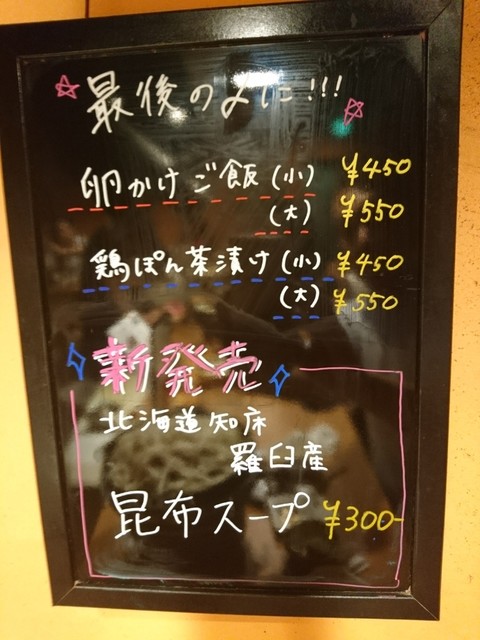 最後の〆に!!!
卵かけご飯(小) ¥450
(大) ¥550
鶏ぽん茶漬け(小) ¥450
(大) ¥550
新発売
北海道知床
羅臼産
昆布スープ ¥300-